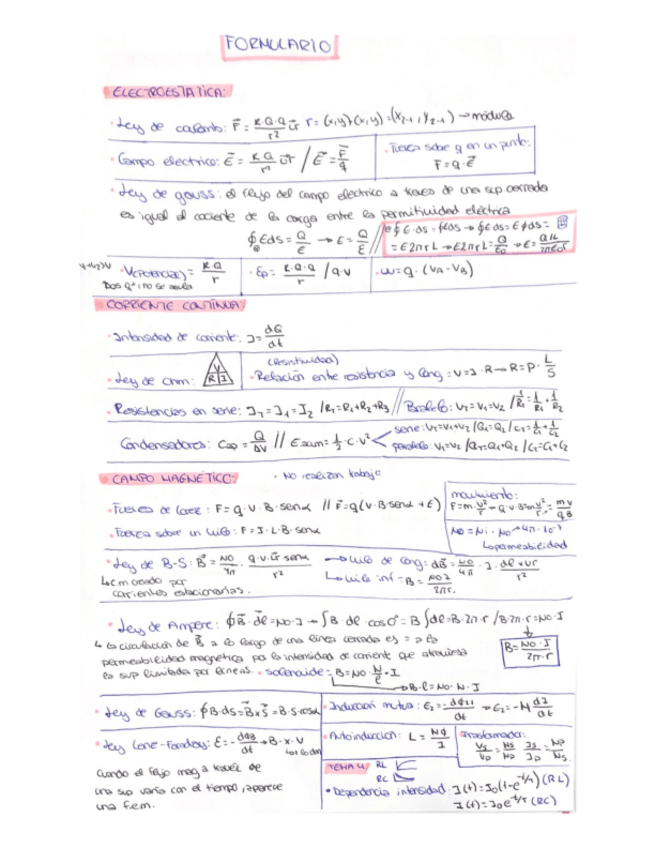 FORMULARIO
ELECTROESTATICA:
· Ley de coulomb: F⃗ = K·Q·Q / r² u⃗r r = (x,y)-(x,y) = (X2-1, Y2-1) → modulo
· Campo electrico: E⃗ = K·Q / r² u⃗r / E⃗ = F⃗/q
· Fuerza sobre q en un punto:
F = q·E⃗
· Ley de gauss: el flujo del campo electrico a traves de una sup cerrada
es igual al cociente de la carga entre la permitividad eléctrica
∮EdS = Q/E → E = Q/E // ∮E·ds = ∮Eds → ∮Eds = E∮ds =
= E2πrL → E2πrL = Q/E0 → E = Q/L / 2πE0r
· V(potencial) = K·Q / r
Dos q+ no se anula
· Ep = K·Q·Q / r / q·V
· W = q·(VA - VB)
CORRIENTE CONTÍNUA:
· Intensidad de corriente: I = dQ/dt
· Ley de Ohm: V R I
(Resistividad)
· Relación entre resistencia y long: V = I·R → R = P·L/S
· Resistencias en serie: IT = I1 = I2 / RT = R1+R2+R3 // Paralelo: VT = V1 = V2 / 1/RT = 1/R1 + 1/R2
Condensadores: Cap = Q/ΔV // Eacum = 1/2·C·V²
serie: VT = V1+V2 / Q1 = Q2 / CT = 1/C1 + 1/C2
paralelo: V1 = V2 / QT = Q1+Q2 / CT = C1+C2
CAMPO MAGNÉTICO: · No realizan trabajo
· Fuerza de Lorez: F = q·V·B·senα // F⃗ = q(V·B·senα + E)
movimiento:
F = m·v²/r → q·v·B = m v²/r → r = mv/qB
· Fuerza sobre un hilo: F = I·L·B·senα
μo = μi·μo → 4π·10⁻⁷
↳ permeabilidad
· Ley de B-S: B⃗ = μo/4π · q·v·u⃗r senα / r²
→ hilo de long: dB⃗ = μo/4π · I · dl×ur / r²
↳ cm creado por
corrientes estacionarias.
↳ hilo inf = B = μoI / 2πr.
· Ley de Ampere: ∮B⃗·dl⃗ = μo·I → ∫B·dl cos0° = B∫dl = B·2π·r / B·2π·r = μo·I
↳ la circulación de B⃗ a lo largo de una linea cerrada es = a la
permeabilidad magnetica por la intensidad de corriente que atraviesa
la sup limitada por lineas. · solenoide: B = μo·N/l·I
B = μo·I / 2π·r
→ B·l = μo·N·I
· Ley de Gauss: ∮B·ds = B⃗×S⃗ = B·S·cosα
· Induccion mutua: E2 = -dΦ21/dt → E2 = -M dI/dt
· Ley Lenz-Faraday: E = -dΦB/dt → B·x·V
Cuando el flujo mag a través de
una sup varia con el tiempo, aparece
una f.e.m.
· Autoinduccion: L = NΦ/I
· Trasformador:
Vs/Vp = Ns/Np Is/Ip = Np/Ns.
TEMA 4: RL
RC
· Dependencia intensidad: I(t) = I0(1-e^-t/τ) (RL)
I(t) = I0 e^-t/τ (RC)